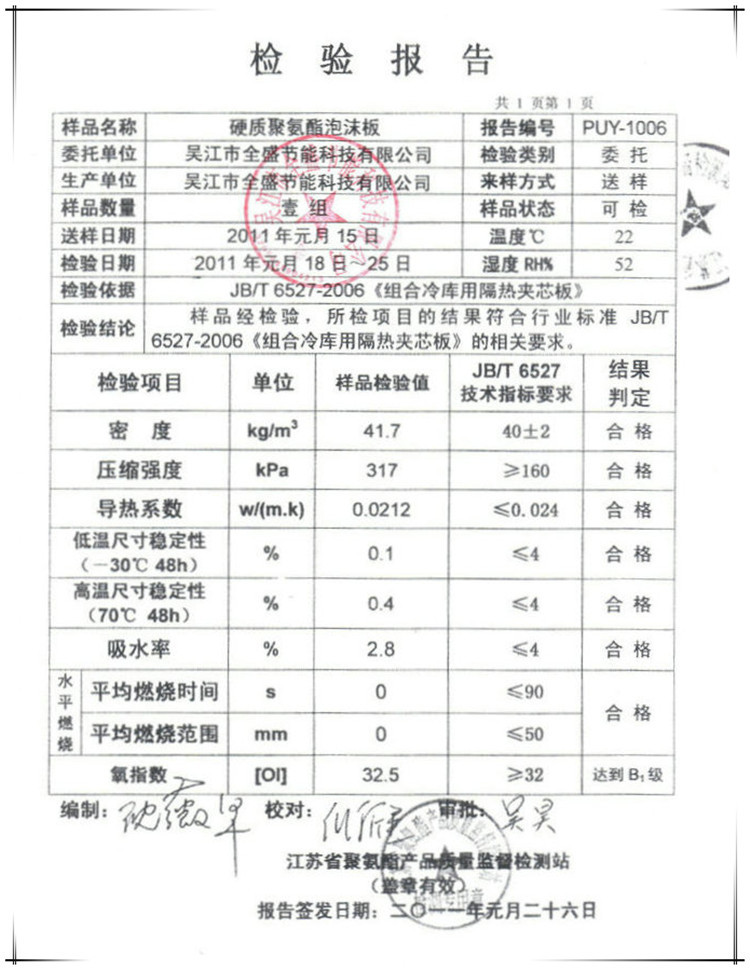 检验报告
共 1 页第 1 页
样品名称 硬质聚氨酯泡沫板 报告编号 PUY-1006
委托单位 吴江市全盛节能科技有限公司 检验类别 委托
生产单位 吴江市全盛节能科技有限公司 来样方式 送样
样品数量 壹组 样品状态 可检
送样日期 2011年元月15日 温度℃ 22
检验日期 2011年元月18日-25日 湿度RH% 52
检验依据 JB/T 6527-2006《组合冷库用隔热夹芯板》
检验结论 样品经检验，所检项目的结果符合行业标准 JB/T
6527-2006《组合冷库用隔热夹芯板》的相关要求。
检验项目 单位 样品检验值 JB/T 6527 技术指标要求 结果判定
密度 kg/m³ 41.7 40±2 合格
压缩强度 kPa 317 ≥160 合格
导热系数 w/(m.k) 0.0212 ≤0.024 合格
低温尺寸稳定性（－30℃ 48h） % 0.1 ≤4 合格
高温尺寸稳定性（70℃ 48h） % 0.4 ≤4 合格
吸水率 % 2.8 ≤4 合格
水平燃烧 平均燃烧时间 s 0 ≤90 合格
平均燃烧范围 mm 0 ≤50
氧指数 [OI] 32.5 ≥32 达到B₁级
编制： 校对： 审批：吴昊
江苏省聚氨酯产品质量监督检测站
（盖章有效）
报告签发日期：二〇一一年元月二十六日